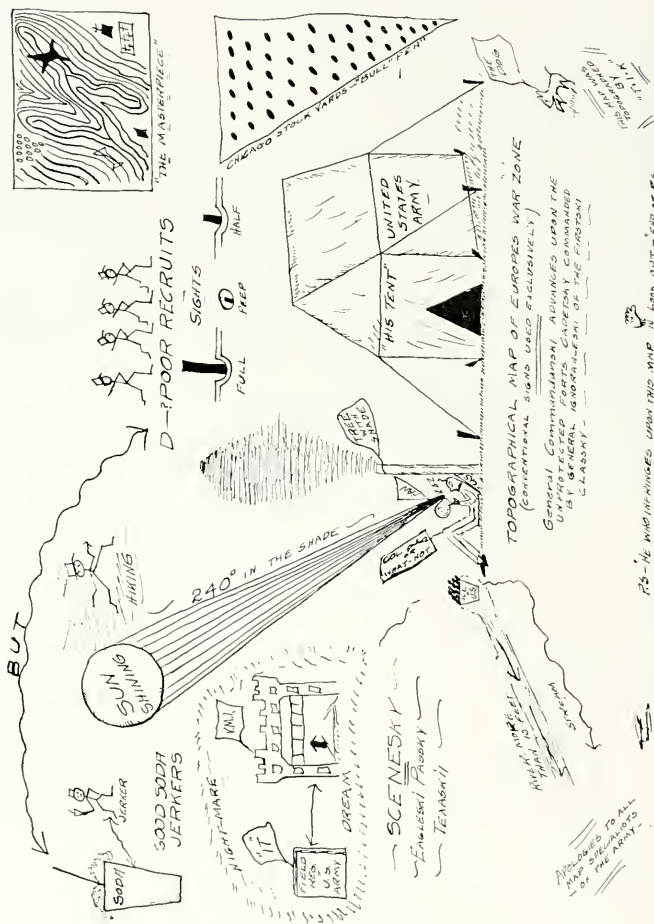 BUT
SODA
JERKER
GOOD SODA
JERKERS
SUN
SHINING
HIKING
240° IN THE SHADE
D—? POOR RECRUITS
SIGHTS
FULL
PEEP
HALF
"THE MASTERPIECE"
CHICAGO STOCK YARDS—"BULL" PEN"
NIGHT-MARE
"IT"
FIELD
HEQ.
U.S.
ARMY
V.M.I.
DREAM
SCENESKY
EAGLESKI PASSKY
TEXASKI
TREE
WITH
SHADE
COL.
OR
WHAT-NOT
"HIS TENT"
UNITED
STATES
ARMY.
THE
DOG
THIS MAP WAS
TOPOG. BY
RIVER MORE
THAN 15 FEET
STREAM
TOPOGRAPHICAL MAP OF EUROPES WAR ZONE
(CONVENTIONAL SIGNS USED EXCLUSIVELY)
General Commandanski ADVANCES UPON THE
UNPROTECTED FORTS CADETSKY COMMANDED
BY GENERAL IGNORANCESKI OF THE FIRSTSKI
CLASSKY—
APOLOGIES TO ALL
MAP SPECIALISTS
OF THE ARMY.
P.S—HE WHO INFRINGES UPON THIS MAP IN LOOK OUT—